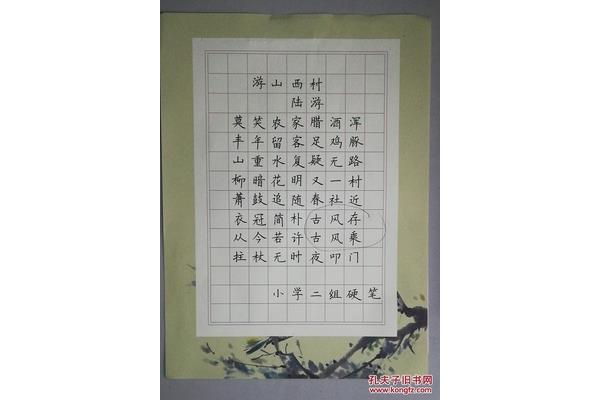 游山西村
陆游
莫笑农家腊酒浑
丰年留客足鸡豚
山重水复疑无路
柳暗花明又一村
萧鼓追随春社近
衣冠简朴古风存
从今若许古风乘
拄杖无时夜叩门
小学二组硬笔
孔夫子旧书网
WWW.KONGFZ.COM